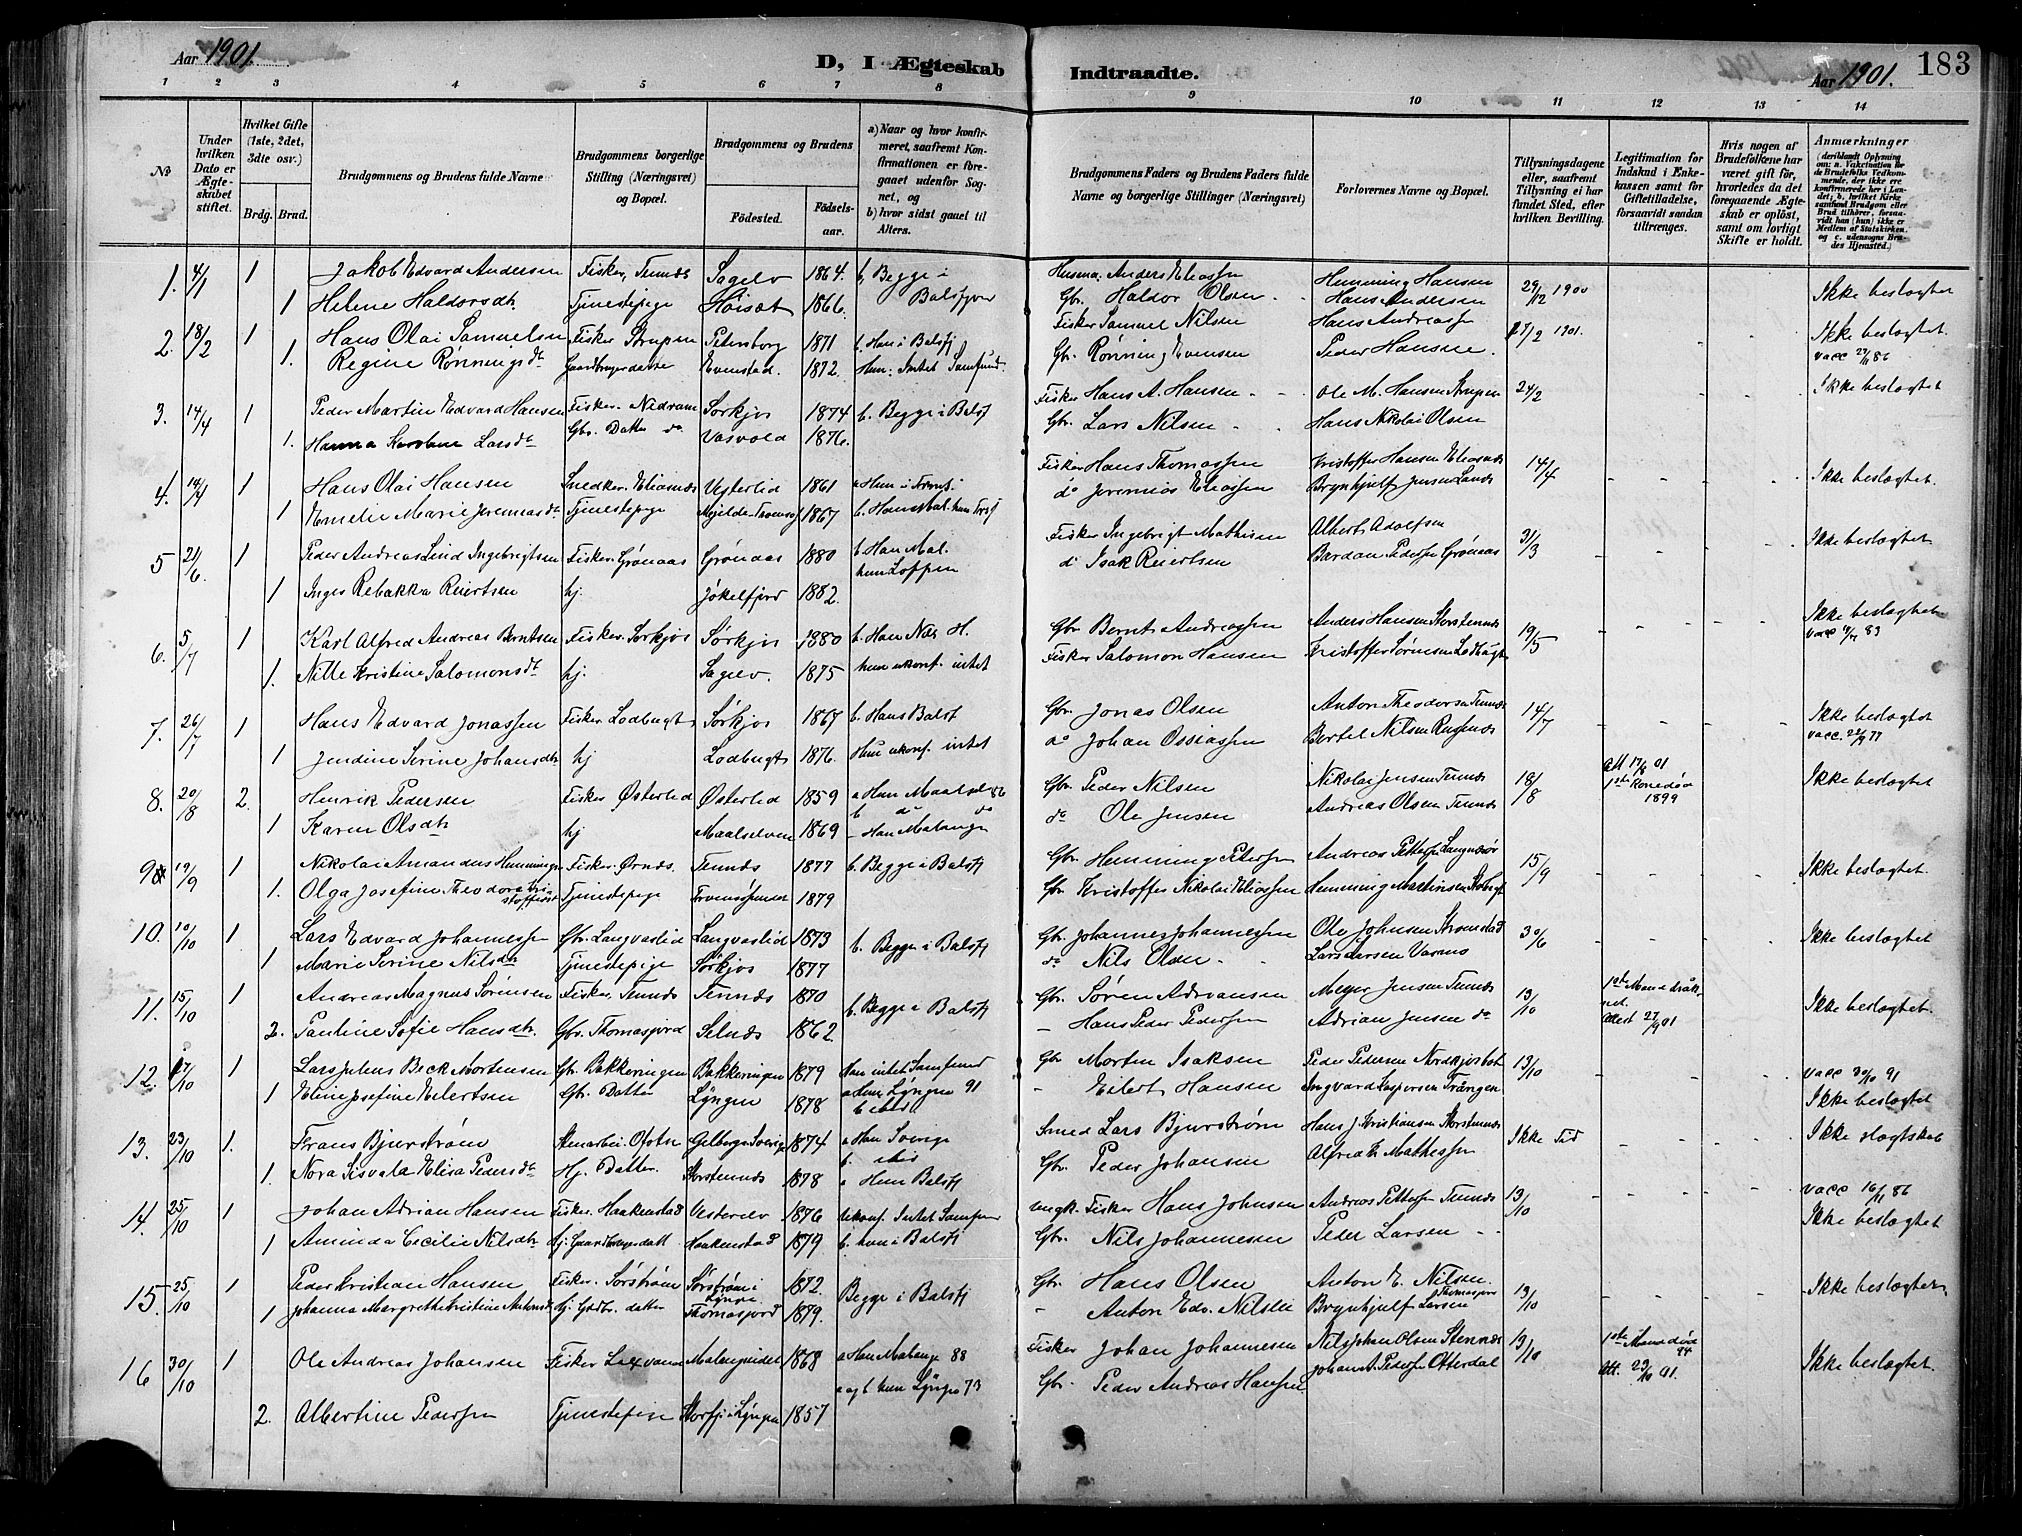 Aar 1901.
D, I Ægteskab
Indtraadte.
Aar 1901.
183
1 2 3 4 5 6 7 8 9 10 11 12 13 14
No
Under hvilken Dato er Ægteskabet stiftet.
Hvilket Gifte (1ste, 2det, 3die osv.)
Brdg. Brud.
Brudgommens og Brudens fulde Navne
Brudgommens borgerlige Stilling (Næringsvei) og Bopæl.
Brudgommens og Brudens
Fødested. Fødselsaar.
a) Naar og hvor konfirmeret, saafremt Konfirmationen er foregaaet udenfor Sognet, og
b) hvor sidst gaaet til Alters.
Brudgommens Faders og Brudens Faders fulde Navne og borgerlige Stillinger (Næringsvei)
Forlovernes Navne og Bopæl.
Tillysningsdagene eller, saafremt Tillysning ei har fundet Sted, efter hvilken Bevilling.
Legitimation for Indskud i Enkekassen samt for Giftetilladelse, forsaavidt saadan tiltrænges.
Hvis nogen af Brudefolkene har været gift før, hvorledes da det foregaaende Ægteskab er opløst, samt om lovligt Skifte er holdt.
Anmærkninger
1. 4/1 1 Jakob Edvard Andersen Fisker, Tennes Sagelv 1864. b, Begge i Husm. Anders Eliassen Hemming Hansen 29/12 1900 Ikke beslægtet
1 Helene Haldorsdtr Tjenestepige Høiset 1866. Balsfjor Gbr. Haldor Olsen Hans Andersen
2. 18/2 1 Hans Olai Samuelsen Fisker Strupen Petersborg 1871 b. Han i Balsfj Fisker Samuel Nilsen Hans Andreassen 17/2 1901. Ikke beslægtet.
1. Regine Rønningsdtr Gaardbrugerdatter Evenstad. 1872. Hun: Intet Samfund. Gbr. Rønning Evensen Peder Hansen. vacc 27/11 86
3. 14/4 1 Peder Martin Edvard Hansen Fisker. Nedram Sørkjos 1874 b. Begge i Balsfj Fisker Hans A. Hansen Ole M. Hansen Strupen 24/2 Ikke beslægtet
1. Hanna Karoline Larsdtr Gbr. Datter do Vasvold 1876. Gbr. Lars Nilsen Hans Nikolai Olsen
4. 14/4 1 Hans Olai Hansen Snedker. Eliasnæs Vesterlid 1861 Fisker Hans Thomassen Kristoffer Hansen Eliasnæs 14/4 Ikke beslægtet.
1 Emelie Marie Jeremiasdtr Tjenestepige 1867 do Jeremias Eliassen Brynhjulf Jensen
5 21/6. 1 Peder Andreas Lind Ingebrigtsen Fisker. Grønaas Grønaas 1880 b. Han Mal. Fisker Ingebrigt Mathisen Albert Adolfsen 31/3 Ikke beslægtet
1 Inger Rebakka Reiertsen hj. Jøkelfjord 1882. hun Loppen do Isak Reiertsen Bardan Pedersen Grønaas
6. 5/7 1 Karl Alfred Andreas Berntsen Fisker. Sørkjos Sørkjos 1880 b. Han Næs H. Gbr Bernt Andreassen Anders Hansen Storstennæs 19/5 Ikke beslægtet
1. Nille Kristine Salomonsdtr hj. Sagelv. 1875 hun ukonf. intet Fisker Salomon Hansen Kristoffer Sørensen Lodbugt
7. 26/7 1 Hans Edvard Jonassen Fisker Lodbugt Sørkjos 1867 b. Hans Balsf Gbr. Jonas Olsen Anton Theodorsen Tennæs 14/7 Ikke beslægtet
1 Jendine Serine Johansdtr hj Lodbugt 1876. Hun ukonf. intet do Johan Ossiassen Bertel Nilsen vacc. 77
8. 20/8 2. Henrik Pedersen Fisker Østerlid Østerlid 1859 a Han Maalselv 86 Gbr. Peder Nilsen Nikolai Jensen Tennæs 18/8 Att 17/8 01 Ikke beslægtet
1 Karen Olsdtr hj Maalselven 1869 do Ole Jensen Andreas Olsen Tennæs 1ste Kone død 1899
9 19/9 1 Nikolai Amandus Hemmingsen Fisker. Ørnæs. Tennæs 1877 b. Begge i Balsfj Gbr Hemming Petersen Andreas Pettersen 15/9 Ikke beslægtet.
1. Olga Josefine Theodora Kristoffersdtr Tjenestepige 1879 Gbr. Kristoffer Nikolai Eliassen Hemming Martinsen
10. 10/10 1 Lars Edvard Johannessen Gbr. Langvaslid Langvaslid 1873 b. Begge i Balsfj Gbr. Johannes Johannessen Ole Johnsen 30/6 Ikke beslægtet
1 Marie Serine Nilsdtr Tjenestepige Sørkjos 1877 do Nils Olsen Lars Larsen
11. 15/10 1 Andreas Magnus Sørensen Fisker, Tennæs Tennæs 1870 b. Begge i Balsfj Gbr. Søren Adriansen Meyer Jensen Tennæs 13/10 1ste Mand druknet. Ikke beslægtet.
2. Pauline Sofie Hansdtr. Gbr. Thomasjord Selnæs 1862 Hans Peder Pedersen Adrian Jensen do Attest 27/9 01
12. 17/10 1 Lars Julius Beck Mortensen Gbr. Bakkeningen Bakkeningen 1879 Han intet Samfund Gbr Morten Isaksen Peder Pedersen Nordkjosbot 13/10 vacc 30/10 91
1 Eline Josefine Eilertsen Gbr. Datter Lyngen 1878 a Hun Lyngen 91 Eilert Hansen Ingvard Kaspersen Trangen Ikke beslægtet
13. 23/10 1. Frans Bjurstrøm Stenarbei. Ofoten 1874 a Han Sverige Smed Lars Bjurstrøm Hans J Kristiansen Storstennæs Ikke Tid Ikke slægtskab
1. Nora Elisa Pedersdtr Hj. Datter. Storstennæs 1878 Hun Balsfj Gbr. Peder Johansen Alfred Mathissen
14. 25/10 1 Johan Adrian Hansen Fisker. Haakenstad Vesterelv 1876 Ukonf. Intet Samfun ungk. Fisker Hans Johnsen Andreas Pettersen Tennæs 13/10 vacc 16/11 86
1 Aminda Cecilie Nilsdtr hj Gaardbrugerdatt Haakenstad 1879 b. hun i Balsfj Gbr. Nils Johannesen Peder Larsen Ikke beslægtet
15. 25/10 1 Peder Kristian Hansen Fisker. Sørstrøm Sørstrøm i Lyngen 1872. Begge i Balsfj Gbr Hans Olsen Anton E. Nilsen. 13/10 Ikke beslægtet
1 Johanna Margrethe Kristine Antonsdt hj. Gdbr. datter Thomasjord 1879. Anton Edv. Nilsen Brynhjulf Larsen Thomasjord
16 30/10 1 Ole Andreas Johansen Fisker Malangseidet 1868 a Han Malange 88 Fisker Johan Johannesen Nils Johan Olsen Stennæs 13/10 1ste Mand død 94 Ikke beslægtet.
2. Albertine Pedersen Tjenestepige Storfj i Lyngen 1857 a og b hun Lyngen 73 Gbr. Peder Andreas Hansen Johan A. Pedersen Otterdal Att. 23/10 01.